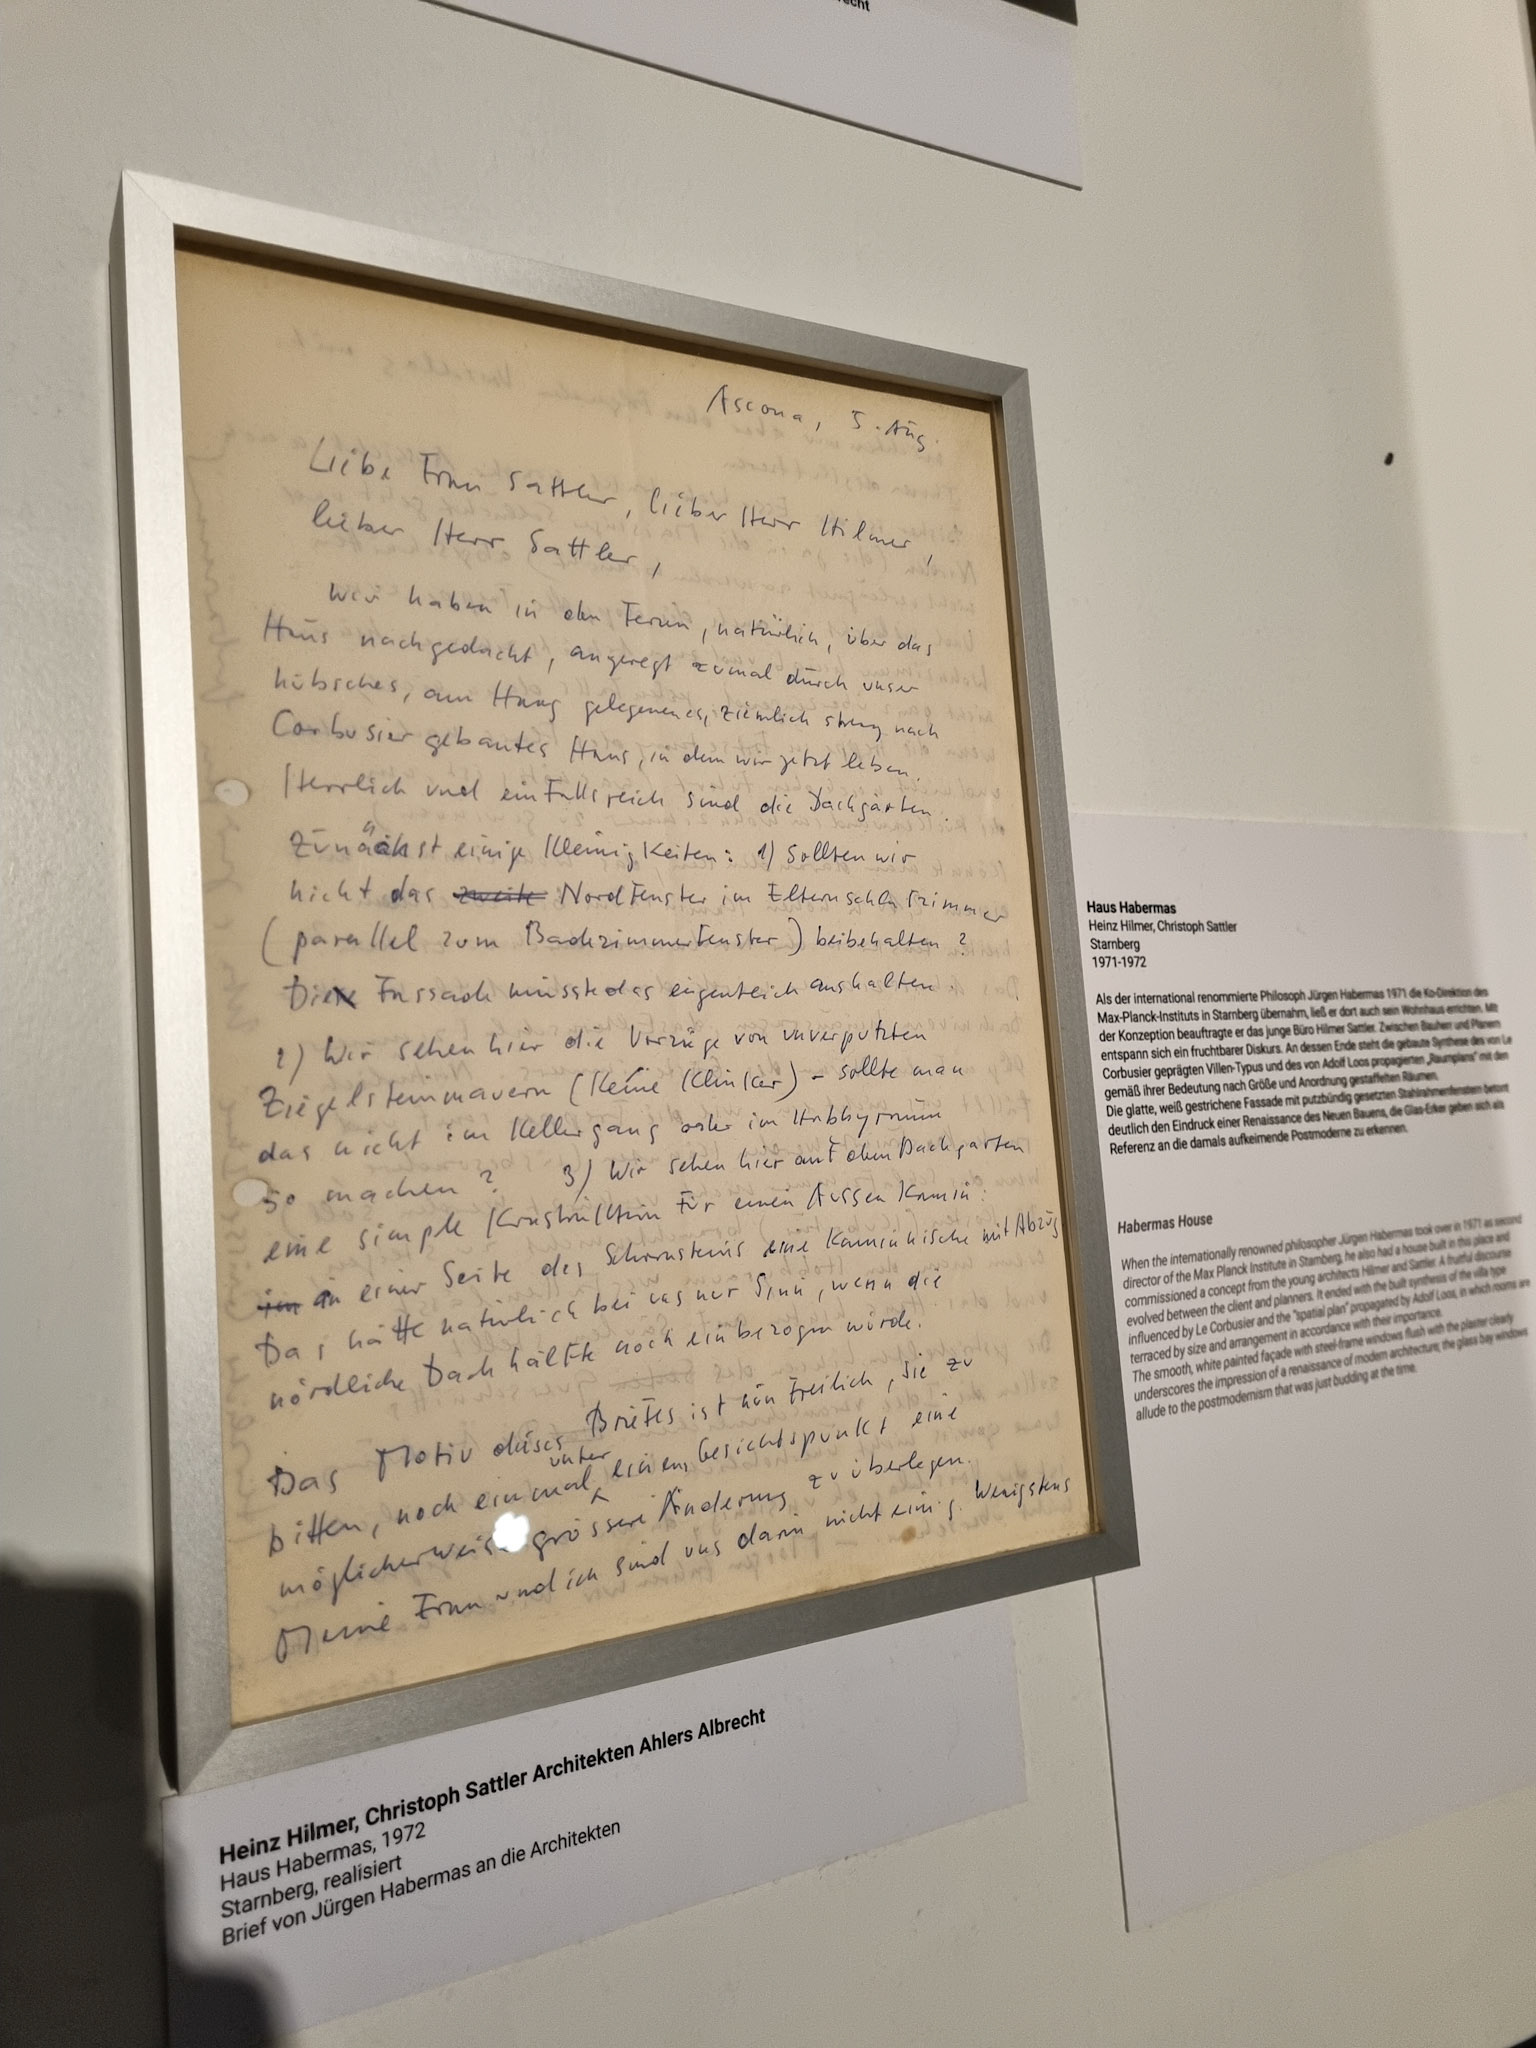 Ascona, 5. Aug.
Liebe Frau Sattler, lieber Herr Hilmer,
lieber Herr Sattler,
wir haben in den Ferien, natürlich, über das
Haus nachgedacht, angeregt zumal durch unser
hübsches, am Hang gelegenes, ziemlich streng nach
Corbusier gebautes Haus, in dem wir jetzt leben.
Herrlich und einfallsreich sind die Dachgärten.
Zunächst einige Kleinigkeiten: 1) sollten wir
nicht das zweite Nordfenster im Elternschlafzimmer
(parallel zum Badezimmerfenster) beibehalten?
Die Fassade müsste das eigentlich aushalten.
2) Wir sehen hier die Vorzüge von unverputzten
Ziegelsteinmauern (keine Klinker) - sollte man
das nicht im Kellergang oder im Hobbyraum
so machen? 3) Wir sehen hier auf dem Dachgarten
eine simple Konstruktion für einen Aussenkamin:
im an einer Seite des Schornsteins eine Kaminnische mit Abzug
Das hätte natürlich bei uns nur Sinn, wenn die
nördliche Dachhälfte noch einbezogen würde.
Das Motiv dieses Briefes ist nun freilich, Sie zu
bitten, noch einmal unter einem Gesichtspunkt eine
möglicherweise grössere Änderung zu überlegen.
Meine Frau und ich sind uns darin nicht einig. Wenigstens
Heinz Hilmer, Christoph Sattler Architekten Ahlers Albrecht
Haus Habermas, 1972
Starnberg, realisiert
Brief von Jürgen Habermas an die Architekten
Haus Habermas
Heinz Hilmer, Christoph Sattler
Starnberg
1971-1972
Als der international renommierte Philosoph Jürgen Habermas 1971 die Ko-Direktion des
Max-Planck-Instituts in Starnberg übernahm, ließ er dort auch sein Wohnhaus errichten. Mit
der Konzeption beauftragte er das junge Büro Hilmer Sattler. Zwischen Bauherr und Planern
entspann sich ein fruchtbarer Diskurs. An dessen Ende steht die gebaute Synthese des von Le
Corbusier geprägten Villen-Typus und des von Adolf Loos propagierten „Raumplans“ mit den
gemäß ihrer Bedeutung nach Größe und Anordnung gestaffelten Räumen.
Die glatte, weiß gestrichene Fassade mit putzbündig gesetzten Stahlrahmenfenstern betont
deutlich den Eindruck einer Renaissance des Neuen Bauens, die Glas-Erker geben sich als
Referenz an die damals aufkeimende Postmoderne zu erkennen.
Habermas House
When the internationally renowned philosopher Jürgen Habermas took over in 1971 as second
director of the Max Planck Institute in Starnberg, he also had a house built in this place and
commissioned a concept from the young architects Hilmer and Sattler. A fruitful discourse
evolved between the client and planners. It ended with the built synthesis of the villa type
influenced by Le Corbusier and the "spatial plan" propagated by Adolf Loos, in which rooms are
terraced by size and arrangement in accordance with their importance.
The smooth, white painted façade with steel-frame windows flush with the plaster clearly
underscores the impression of a renaissance of modern architecture; the glass bay windows
allude to the postmodernism that was just budding at the time.